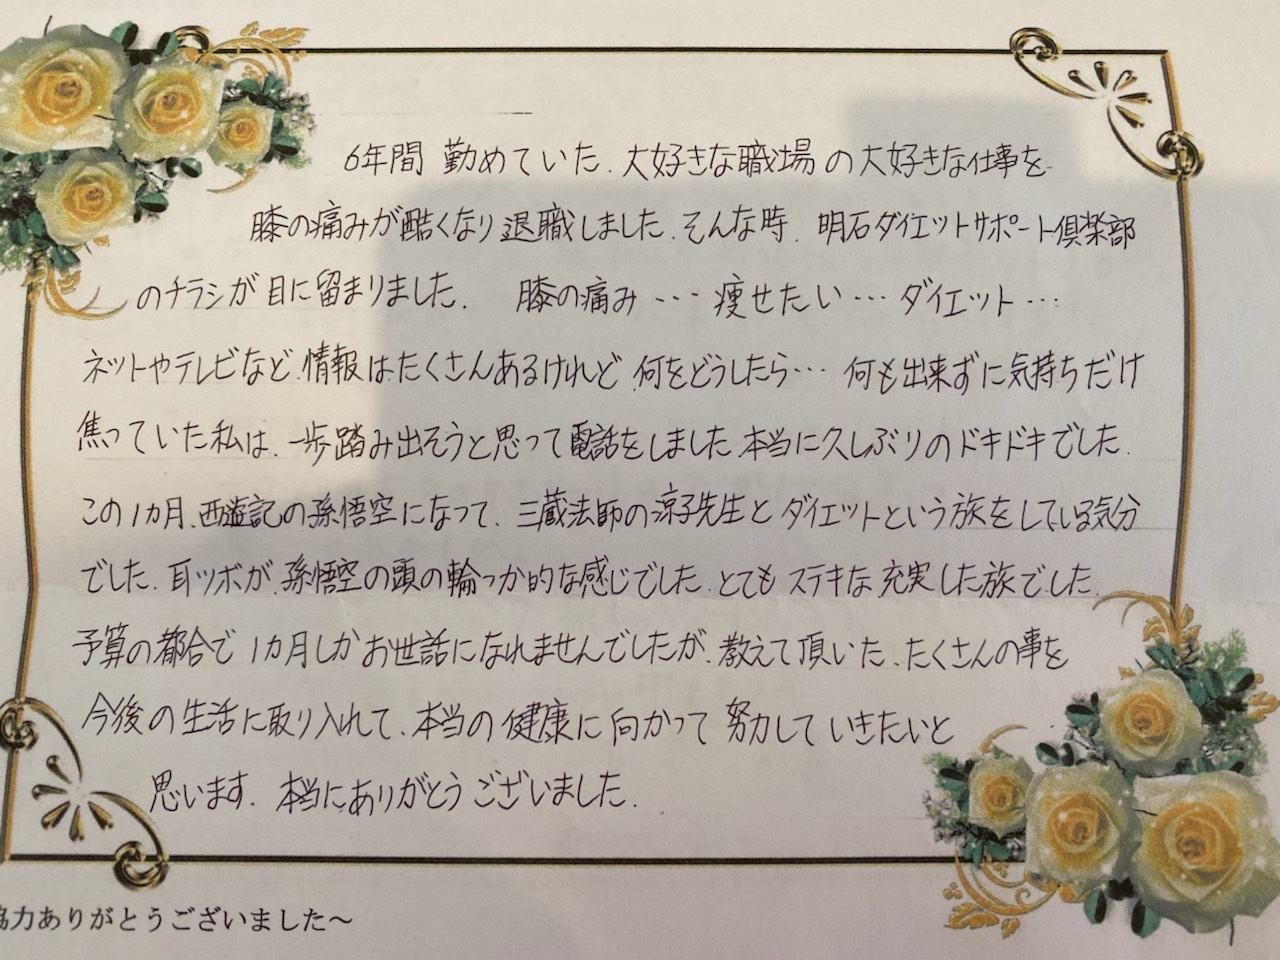 6年間 勤めていた、大好きな職場の大好きな仕事を
膝の痛みが酷くなり退職しました。そんな時、明石ダイエットサポート倶楽部
のチラシが目に留まりました。 膝の痛み… 痩せたい… ダイエット…
ネットやテレビなど、情報はたくさんあるけれど 何をどうしたら… 何も出来ずに気持ちだけ
焦っていた私は、一歩踏み出そうと思って電話をしました。本当に久しぶりのドキドキでした。
この1カ月、西遊記の孫悟空になって、三蔵法師の涼子先生とダイエットという旅をしている気分
でした。耳ツボが、孫悟空の頭の輪っか的な感じでした。とてもステキな充実した旅でした。
予算の都合で1カ月しかお世話になれませんでしたが、教えて頂いた、たくさんの事を
今後の生活に取り入れて、本当の健康に向かって努力していきたいと
思います。本当にありがとうございました。
協力ありがとうございました〜